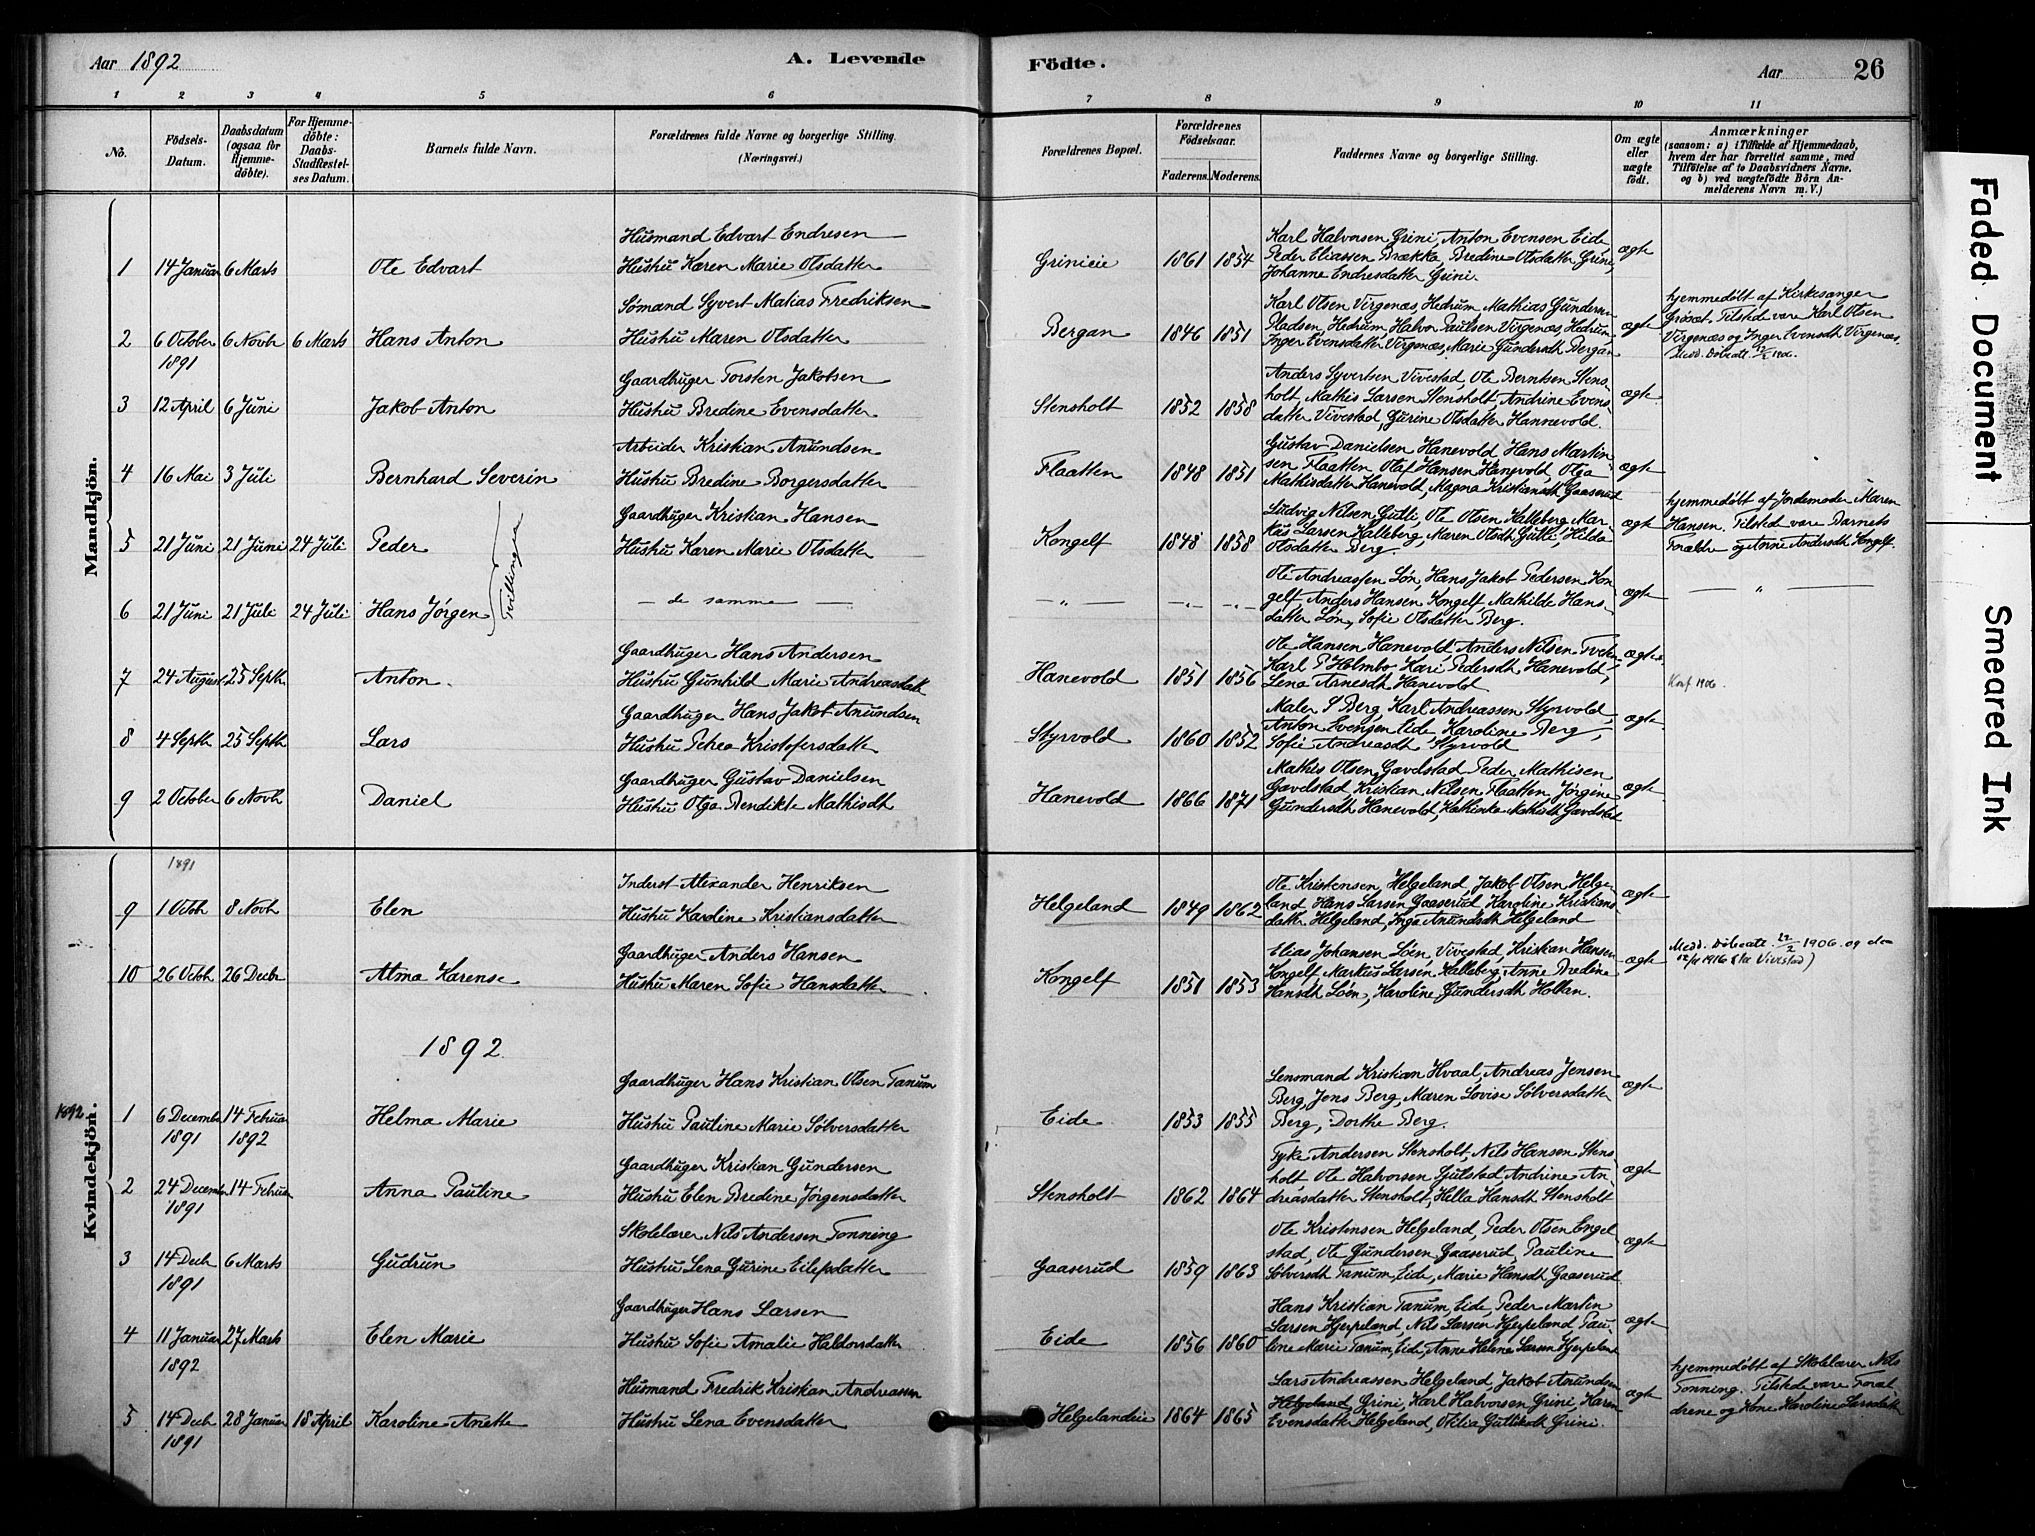 Aar 1892
A. Levende
Födte.
Aar
26
1 2 3 4 5 6 7 8 9 10 11
No.
Födsels-
Datum.
Daabsdatum
(ogsaa for
Hjemme-
döbte).
For Hjemme-
döbte:
Daabs-
Stadfæstel-
ses Datum.
Barnets fulde Navn.
Forældrenes fulde Navne og borgerlige Stilling.
(Næringsvei.)
Forældrenes Bopæl.
Forældrenes
Födselsaar.
Faderens. Moderens.
Faddernes Navne og borgerlige Stilling.
Om ægte
eller
uægte
födt.
Anmærkninger
(saasom: a) i Tilfælde af Hjemmedaab,
hvem der har forrettet samme, med
Tilföielse af to Daabsvidners Navne.
og b) ved uægtefödte Börn An-
melderens Navn m. V.)
Mandkjön.
1 14 Januar 6 Marts Ole Edvart
Husmand Edvart Endresen
Hustru Karen Marie Olsdatter
Grinieie 1861 1854
Karl Halvorsen Grini, Anton Evensen Eide,
Peder Eliassen Brække, Bredine Olsdatter Grini,
Johanne Endresdatter Grini.
ægte
2 6 October 6 Novbr 6 Marts Hans Anton
1891
Sømand Syvert Matias Fredriksen
Hustru Maren Olsdatter
Bergan 1846 1851
Karl Olsen Virgenæs, Hedrum, Mathias Gundersen
Pladsen, Hedrum, Halvor Paulsen Virgenæs, Hedrum,
Inger Evensdatter Virgenæs, Marie Gundersdt Bergan
ægte
hjemmedøbt af Kirkesanger
Grisæt. Tilsted vare Karl Olsen
Virgenæs og Inger Evensdt Virgenæs.
3 12 April 6 Juni Jakob Anton
Gaardbruger Torsten Jakobsen
Hustru Bredine Evensdatter
Stensholt 1852 1858
Anders Syvertsen Vivestad, Ole Berntsen Stens-
holt, Mathis Larsen Stensholt, Andrine Evens-
datter Vivestad, Gurine Olsdatter Hannevold.
ægte
4 16 Mai 3 Juli Bernhard Severin
Arbeider Kristian Anundsen
Hustru Bredine Borgersdatter
Flaatten 1848 1851
Gustav Danielsen Hanevold, Hans Martin-
sen Flaatten, Olaf Hansen Hanevold, Olga
Mathisdatter Hanevold, Magna Kristiansdt Gaaserud
ægte
5 21 Juni 21 Juni 24 Juli Peder
Tvillinger
Gaardbruger Kristian Hansen
Hustru Karen Marie Olsdatter
Kongelf 1848 1858
Ludvig Nilsen Gutli, Ole Olsen Kalleberg, Mar-
kus Larsen Kalleberg, Maren Olsdt Gutli, Hilda
Olsdatter Berg
ægte
hjemmedøbt af Jordemoder Maren
Hansen. Tilsted vare Barnets
Forældre og Anne Andersdt Kongelf.
6 21 Juni 21 Juli 24 Juli Hans Jørgen
— de samme —
— „ — — „ — — „ —
Ole Andreassen Løn, Hans Jakob Pedersen Kon-
gelf, Anders Hansen Kongelf, Mathilde Hans-
datter Løn, Sofie Olsdatter Berg.
ægte
— „ —
7 24 August 25 Septb Anton.
Gaardbruger Hans Andersen
Hustru Gunhild Marie Andreasdatt
Hanevold 1851 1856
Ole Hansen Hanevold, Anders Nilsen
Karl P Holmbo, Kari Pedersdt Hanevold,
Lena Arnesdt Hanevold
ægte
Konf 1906.
8 4 Septb 25 Septb Lars
Gaardbruger Hans Jakob Anundsen
Hustru Petrea Kristofersdatter
Styrvold 1860 1852
Maler P Berg, Karl Andreassen Styrvold,
Anton Evensen Eide, Karoline Berg,
Sofie Andreasdt Styrvold
ægte
9 2 October 6 Novb Daniel
Gaardbruger Gustav Danielsen
Hustru Olga Bendikte Mathisdt
Hanevold 1866 1871
Mathis Olsen Gavelstad, Peder Mathisen
Gavelstad, Kristian Nilsen Flaatten, Jørgine
Gundersdt Hanevold, Kathinka Mathisdt Gavelstad
ægte
Kvindekjön.
1891
9 1 Octbr 8 Novb Elen
Inderst Alexander Henriksen
Hustru Karoline Kristiansdatter
Helgeland 1849 1862
Ole Kristensen Helgeland, Jakob Olsen Helge-
land, Hans Larsen Gaaserud, Karoline Kristians-
datter Helgeland, Inga Anundsdt Helgeland
ægte
10 26 Octbr 26 Decbr Alma Karense
Gaardbruger Anders Hansen
Hustru Maren Sofie Hansdatter
Kongelf 1851 1853
Elias Johansen Løen, Vivestad, Kristian Hansen
Kongelf, Markus Larsen Kalleberg, Anne Bredine
Hansdt Løen, Karoline Gundersdt Holtan.
ægte
Medd. Døbeatt. 22/2 1906. og
1916 (for Vivestad)
1892
1892
1 6 Decemb 14 Februar Helma Marie
1891 1892
Gaardbruger Hans Kristian Olsen Tanum
Hustru Pauline Marie Sølversdatter
Eide 1853 1855
Lensmand Kristian Hvaal, Andreas Jensen
Berg, Jens Berg, Maren Lovise Sølversdatter
Berg, Dorthe Berg.
ægte
2 24 Decemb 14 Februar Anna Pauline
1891
Gaardbruger Kristian Gundersen
Hustru Elen Bredine Jørgensdatter
Stensholt 1862 1864
Tyke Andersen Stensholt, Nils Hansen Stens-
holt, Ole Halvorsen Gjulstad, Andrine An-
dreasdatter Stensholt, Hella Hansdt Stensholt
ægte
3 14 Decb 6 Marts Gudrun
1891
Skolelærer Nils Andersen Tonning
Hustru Lena Gurine Eilefsdatter
Gaaserud 1859 1863
Ole Kristensen Helgeland, Peder Olsen Engel-
stad, Ole Gundersen Gaaserud, Pauline
Sølversdt Tanum, Eide, Marie Hansdt Gaaserud
ægte
4 11 Januar 27 Marts Elen Marie
1892
Gaardbruger Hans Larsen
Hustru Sofie Amalie Haldorsdatter
Eide 1856 1860
Hans Kristian Tanum, Eide, Peder Martin
Larsen Hjerpeland, Nils Larsen Hjerpeland, Pau-
line Marie Tanum, Eide, Anne Helene Larsen Hjerpeland
ægte
5 14 Decb 28 Januar 18 April Karoline Anette
1891
Husmand Fredrik Kristian Andreassen
Hustru Lena Evensdatter
Helgelandeie 1864 1865
Lars Andreassen Helgeland, Jakob Anundsen
Helgeland, Grini, Karl Halvorsen Grini, Karen
Evensdatter Helgeland, Otilia Gulliksdt Grini.
ægte
hjemmedøbt af Skolelærer Nils
Tonning. Tilstede vare Foræl-
drene og Kone Karoline Larsdatter
Faded Document
Smeared Ink